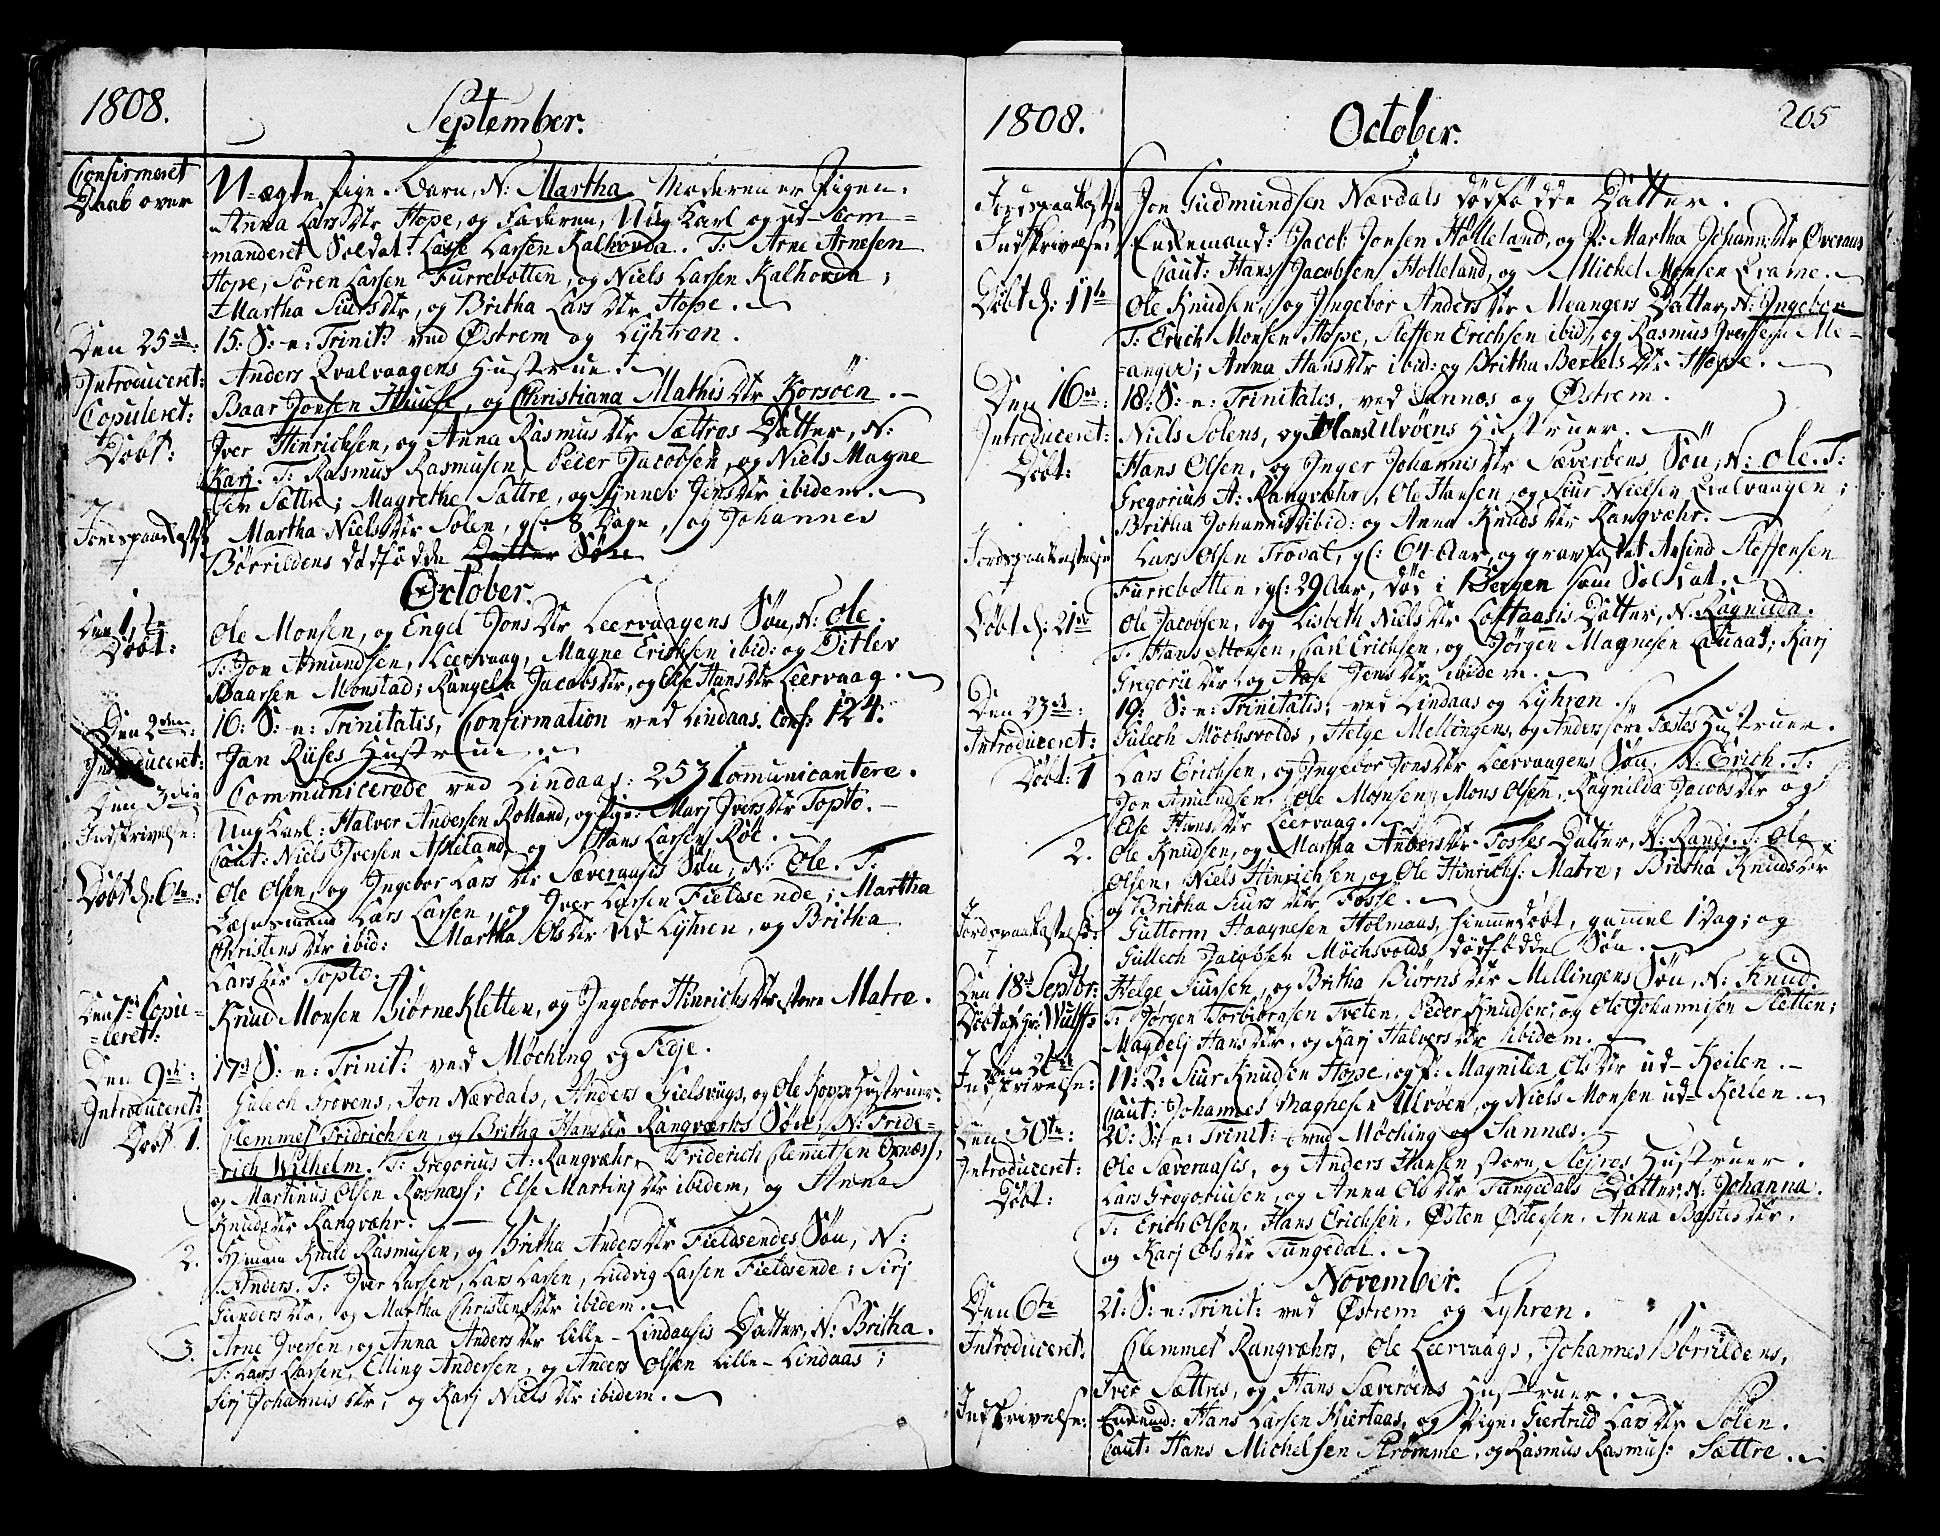 1808.
September.
Confirmeret
Daab over
Uægte Pige-Barn, N: Martha Moderen er Pigen
Anna Lars Dtr Hope, og Faderen, Ung Karl og ud-Com-
manderet Soldat Lasse Larsen Kalhovda. T: Arne Arnesen
Hope, Sören Larsen Furrebotten, og Niels Larsen Kalhovda;
Martha Siurs Dtr, og Britha Lars Dtr Hope.
Den 25de:
15: S: e: Trinit: ved Østrem og Lyhren.
Introduceret:
Anders Qvalvaagens Hustrue.
Copuleret:
Baar Jonsen Huuse, og Christiana Mathis Dtr Korsöen.
Döbt:
Jver Hinrichsen, og Anna Rasmus Dtr Sættres Datter, N:
Karj. T: Rasmus Rasmusen, Peder Jacobsen, og Niels Magne
sen Sættre; Magrethe Sættre, og Synnev Jens Dtr ibidem.
Jordspaakastelse
Martha Niels Dtr Solen, gl: 8 Dage, og Johannes
Börrildens dödfödde Datter Sön
October.
Den 1te
Döbt:
Ole Monsen, og Engel Jons Dtr Leervaagens Sön, N: Ole.
T: Jon Amundsen, Leervaag, Magne Erichsen ibid: og Ditlev
Baarsen Monstad; Rangela Jacobs Dtr, og Else Hans Dtr Leervaag.
Den 2den:
16: S: e: Trinitatis, Confirmation ved Lindaas. Conf: 124.
Introduceret:
Jan Riises Hustrue.
Communicerede ved Lindaas: 253 Communicantere.
Den 3die
Indskrivelse:
Ung Karl: Halvor Andersen Rolland, og Pige: Marj Jvers Dtr Topto.
Caut: Niels Jversen Askeland, og Hans Larsen Röe.
Döbt d: 6te:
Ole Olsen, og Jngebor Lars Dtr Sæveraasis Sön, N: Ole. T:
Lehnsmand Lars Larsen, og Jver Larsen Fieldsende; Martha
Christens Dtr ibid: Martha Ols Dtr Ud Lyhren, og Britha
Lars Dtr Topto.
Den 7de Copu-
leret:
Knud Monsen Biörnekletten, og Jngebor Hinrichs Dtr store Matre.
Den 9de:
17de S: e: Trinit: ved Möching og Fedje.
Introduceret:
Gulech Grovens, Jon Nævdals, Anders Gielsvigs, og Ole Kopps Hustruer.
Döbt 1.
Clemmet Fridrichsen, og Britha Hans Dtr Rangværts Sön, N: Fride-
rich Wilhelm. T: Gregorius A: Rangvæhr, Friderich Clemetsen Ornæs,
og Martinus Olsen Rosnæs; Else Martini Dtr ibidem, og Anna
Knuds Dtr Rangvæhr.
2.
Hjmam Knud Rasmusen, og Britha Anders Dtr Fieldsendes Sön, N:
Anders. T: Jver Larsen, Lars Larsen, Ludvig Larsen Fieldsende; Sirj
Gunders Dtr, og Martha Christens Dtr ibidem.
3.
Arne Jversen, og Anna Anders Dtr lille-Lindaasis Datter, N: Britha.
T: Lars Larsen, Elling Andersen, og Anders Olsen Lille-Lindaas;
Sirj Johannis Dtr, og Karj Niels Dtr ibidem.
1808.
October.
265
Jordspaakastelse
Jon Gudmundsen Nævdals dödfödde Datter.
Indskrivelse:
Enkemand: Jacob Jonsen Holleland, og P: Martha Johannis Dtr Øveraas
Caut: Hans Jacobsen Holleland, og Michel Monsen Qvame.
Döbt d: 11te
Ole Knudsen, og Jngebor Anders Dtr Meangers Datter, N: Jngebor
T: Erich Monsen Hope, Steffen Erichsen ibid, og Rasmus Jversen Me-
anger; Anna Hans Dtr ibid: og Britha Bertels Dtr Hope.
Den 16de:
18: S: e: Trinitatis, ved Sannæs og Østrem.
Introduceret:
Niels Solens, og Hans Ulvöens Hustruer.
Döbt:
Hans Olsen, og Jnger Johannis Dtr Sæveröens Sön, N: Ole. T:
Gregorius A: Rangvæhr, Ole Hansen, og Siur Nielsen Qvalvaagen;
Britha Johannis ibid: og Anna Knuds Dtr Rangvæhr.
Jordspaakastelse
Lars Olsen Troval, gl: 64 Aar, og gravfæstet Arsind Steffensen
Furrebotten, gl: 29 Aar, död i Bergen som Soldat.
Döbt d: 21de
Ole Jacobsen, og Lisbeth Niels Dtr Loftaasis Datter, N: Ragnilda.
T: Hans Monsen, Carl Erichsen, og Jörgen Magnesen Lauaas; Karj
Gregorii Dtr, og Aase Jens Dtr ibidem.
Den 23de:
19: S: e: Trinitatis, ved Lindaas og Lyhren.
Introduceret:
Gulech Möchsvolds, Helge Mellingens, og Anders söre Fæstes Hustruer.
Döbt: 1
Lars Erichsen, og Jngebor Jons Dtr Leervaagens Sön, N: Erich. T:
Jon Amundsen, Ole Monsen, Mons Olsen, Ragnilda Jacobs Dtr og
Else Hans Dtr Leervaag.
2.
Ole Knudsen, og Martha Anders Dtr Fosses Datter, N: Randi. T: Ole
Olsen, Niels Hinrichsen, og Ole Hinrichs: Matre; Britha Knuds Dtr
og Britha Siurs Dtr Fosse.
Jordspaakastelse:
Guttorm Haagnesen Holmaas, hiemmedöbt, gammel 1 Dag; og
Gullech Jacobsen Möchsvolds dödfödde Sön.
Den 18de Septbr:
Döbt af Hr: Wulff
Helge Siursen, og Britha Biörns Dtr Mellingens Sön, N: Knud.
T: Jörgen Torbibrnsen Tveten, Peder Knudsen, og Ole Johannisen Sletten;
Magdelj Hans Dtr, og Karj Halvers Dtr ibidem.
Den 26de
Indskrivelse:
U: K: Siur Knudsen Hope, og P: Magnilda Ols Dtr ud-Keilen.
Caut: Johannes Magnesen Ulvöen, og Niels Monsen ud-Keilen.
Den 30te:
20: S: e: Trinit: ved Möching og Sannæs.
Introduceret:
Ole Sæveraasis, og Anders Hansen store Hustruer.
Döbt:
Lars Gregoriusen, og Anna Ols Dtr Tungedals Datter, N: Johanna.
T: Erich Olsen, Hans Erichsen, Østen Østensen, Anna Baste Dtr,
og Karj Ols Dtr Tungedal.
November.
Den 6te
21: S: e: Trinit: ved Østrem og Lyhren.
Introduceret:
Clemmet Rangvæhrs, Ole Leervaags, Johannes Börrildens,
Jver Sættres, og Hans Sæveröens Hustruer.
Indskrivelse:
Enkemd: Hans Larsen Hiertaas, og Pige: Giertrud Lars Dtr Solen.
Caut: Hans Michelsen Strömme, og Rasmus Rasmus: Sættre.